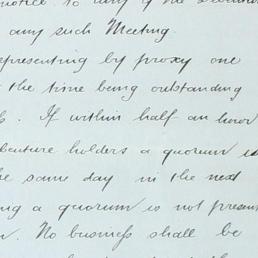 notice to any of the
any such Meeting.
representing by proxy one
the time being outstanding
. If within half an hour
debenture holders a quorum is
the same day in the next
a quorum is not present
. No business shall be